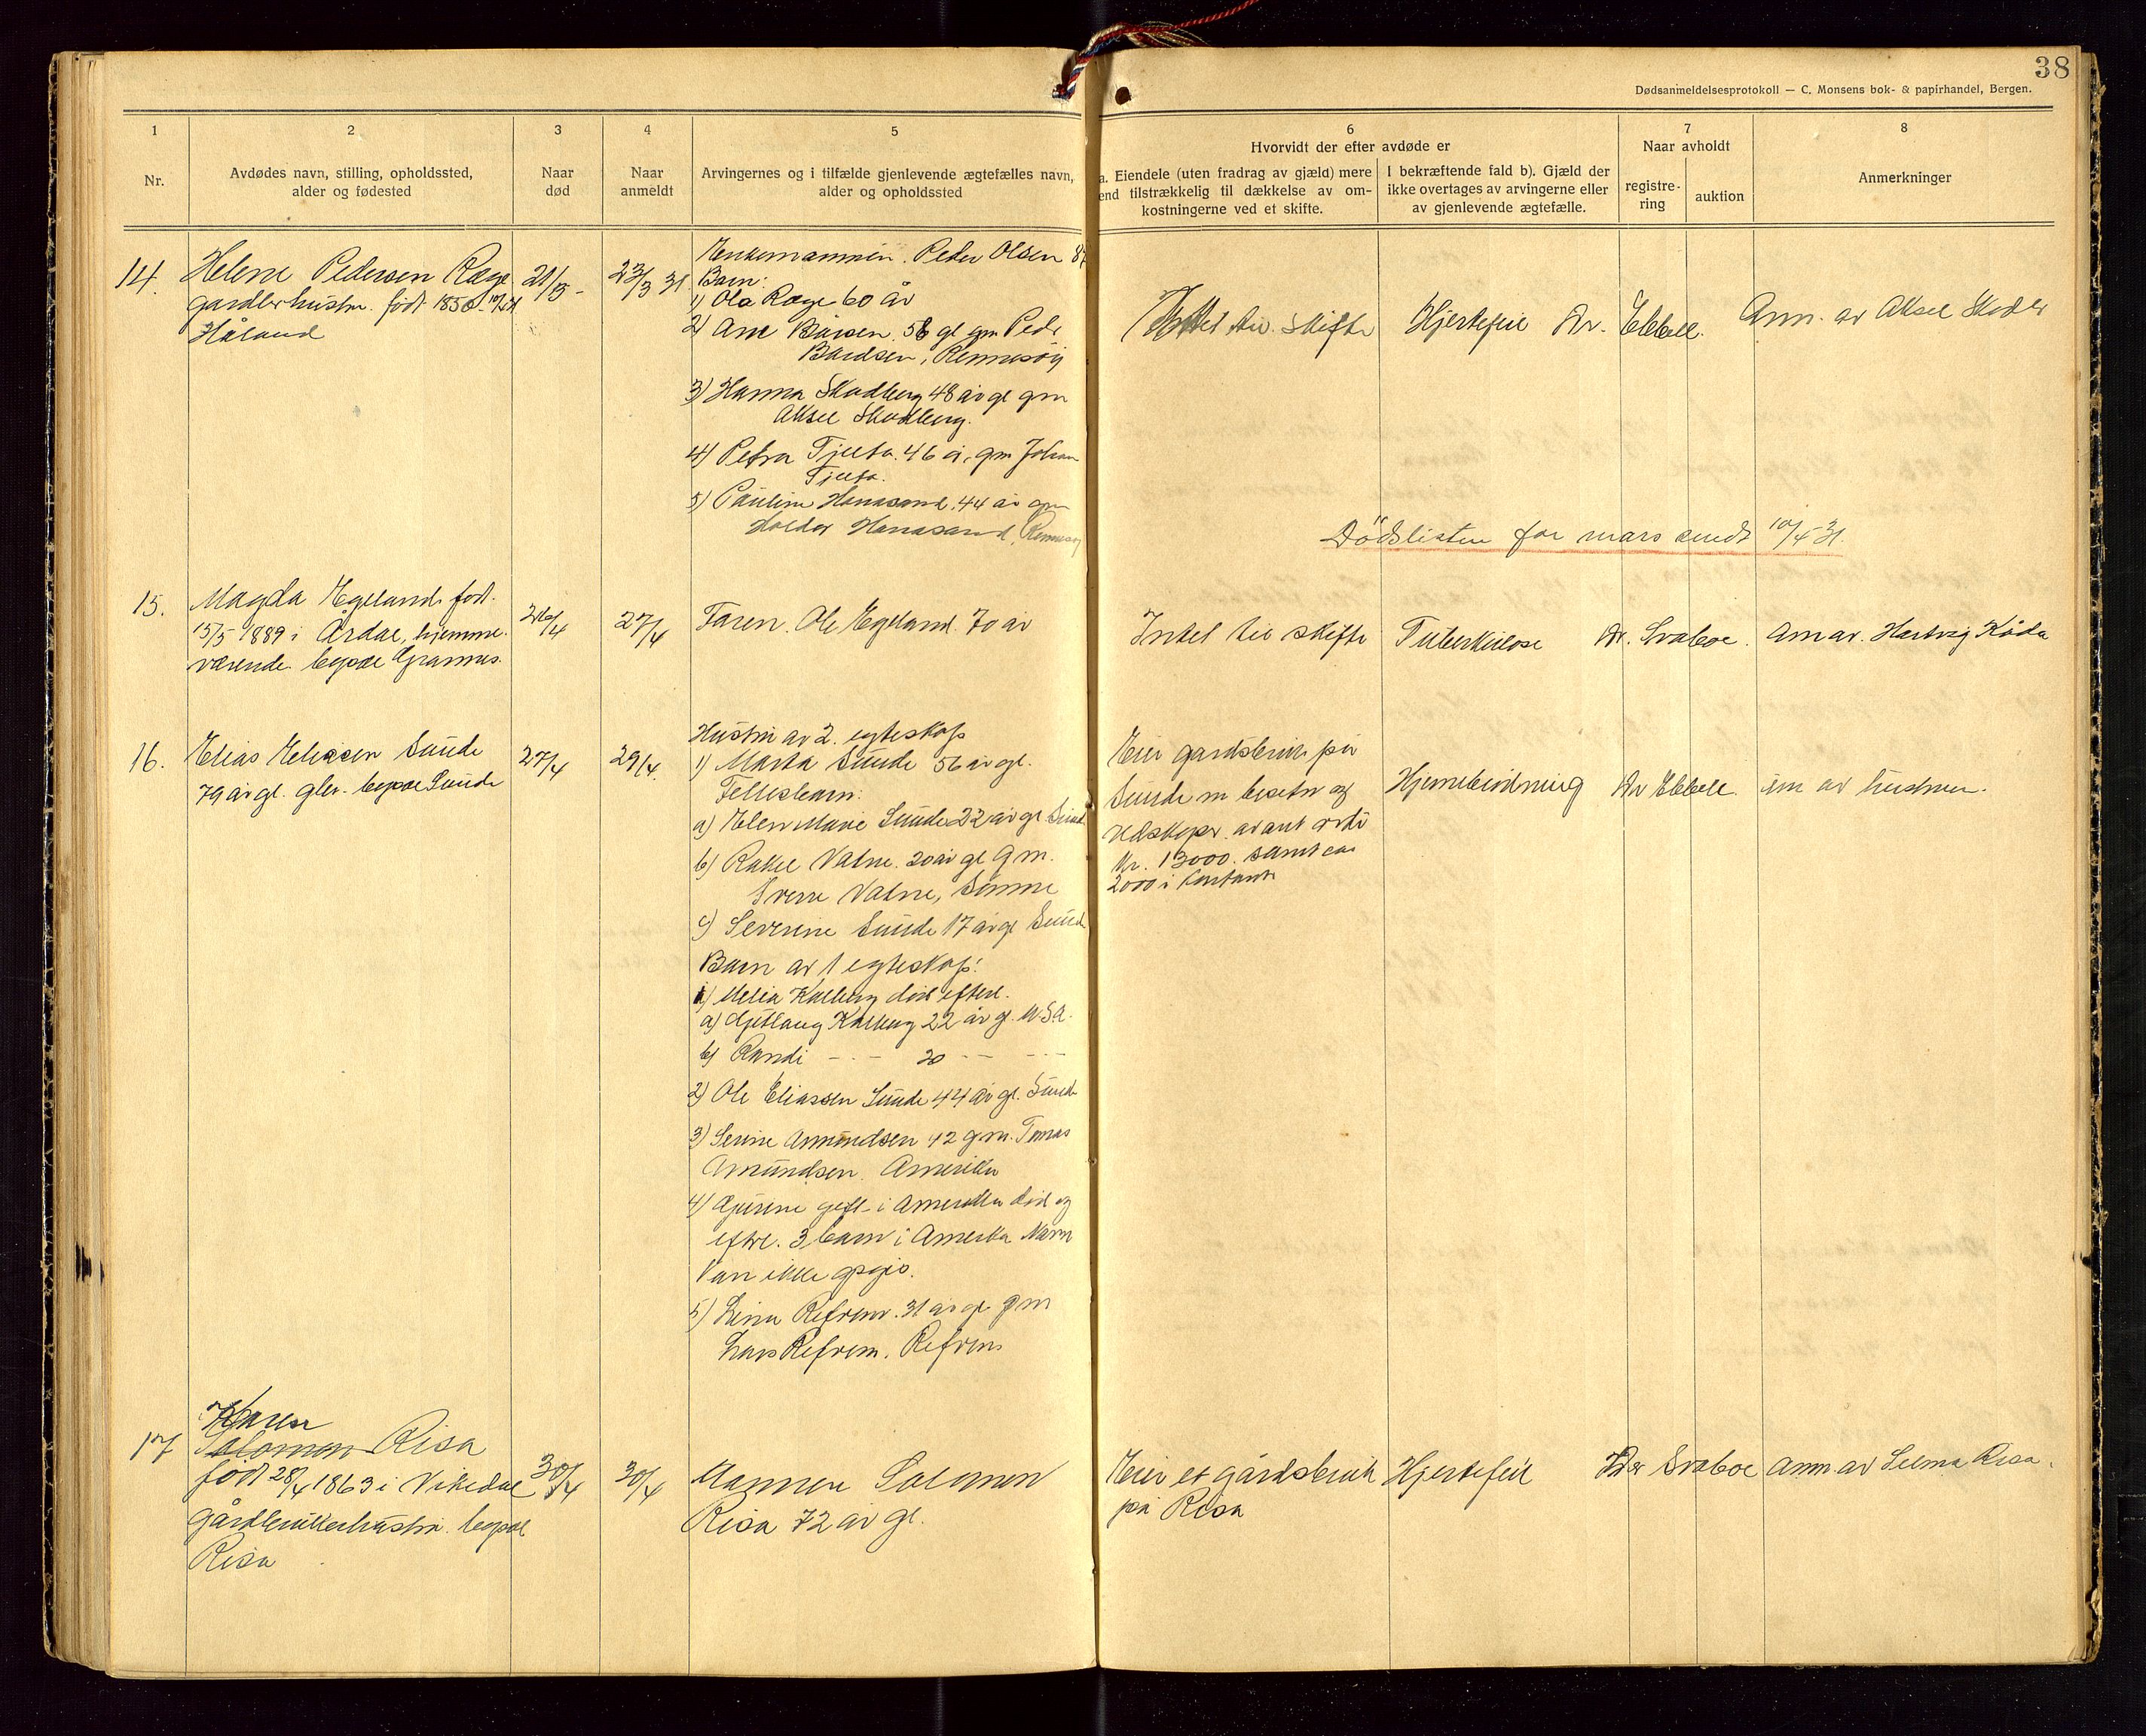 38
Dødsanmeldelsesprotokoll — C. Monsens bok- & papirhandel, Bergen.
1
Nr.
2
Avdødes navn, stilling, opholdssted,
alder og fødested
3
Naar
død
4
Naar
anmeldt
5
Arvingernes og i tilfælde gjenlevende ægtefælles navn,
alder og opholdssted
6
Hvorvidt der efter avdøde er
a. Eiendele (uten fradrag av gjæld) mere
end tilstrækkelig til dækkelse av om-
kostningerne ved et skifte.
I bekræftende fald b). Gjæld der
ikke overtages av arvingerne eller
av gjenlevende ægtefælle.
7
Naar avholdt
registre-
ring
auktion
8
Anmerkninger
14.
Helene Pedersen Rage
gardbrhustru. født 1850
Håland
23/3 31
Enkemannen. Peder Olsen
Barn:
1) Ola Rage 60 år
2) Ane Bårdsen. 56 gl gm Peder
Bårdsen, Rennesøy
3) Hanna Skadberg 48 år gl gm
Aksel Skadberg.
4) Petra Tjelta. 46 år. gm Johan
Tjelta.
5) Pauline Hanasand. 44 år gm
Haldor Hanasand, Rennesøy
Intet til skifte
Hjertefeil
Dr. Ebbell.
Anm. av Aksel
Dødslisten for mars sendt 10/4-31.
15.
Magda Egeland, født.
15/5 1889 i Årdal, hjemme-
værende. bopæl Grannes.
26/4
27/4
Faren. Ole Egeland. 70 år
Intet til skifte
Tuberkulose
Dr. Svaboe.
Anm av. Hartvig Kåda
16.
Elias Eliassen Sunde
79 år gl. gbr. bopæl Sunde
27/4
29/4.
Hustru av 2. egteskap
1) Marta Sunde 56 år gl.
Fellesbarn:
a) Elen Marie Sunde 22 år gl Sunde
b) Rakel Vatne. 20 år gl gm.
Sverre Vatne, Sømme
c) Severine Sunde 17 år gl Sunde
Barn av 1 egteskap:
1) Melia Kalberg død efterl.
a) Gjetlaug Kalberg 22 år gl. U.S.A.
b) Randi -"- 20 -"- -"-
2) Ole Eliassen Sunde 44 år gl. Sunde
3) Serine Amundsen 42 gm. Tomas
Amundsen. Amerika
4) gift i Amerika død og
efterl. 3 barn i Amerika Navn
kan ikke opgis.
5) Lina Refrem. 31 år gl. gm
Lars Refrem. Refrem
Eier gardsbruk på
Sunde m besetn og
redskaper. av ant verdi
Kr. 13000. samt ca
2000 i kontant
Hjerneblødning
Dr Ebbell.
av hustruen.
17
Karen
Salomon Risa
født 28/4 1863 i Vikedal
gårdbrukerhustru. bopæl
Risa
30/4
30/4
Mannen Salomon
Risa 72 år gl.
Eier et gårdsbruk
på Risa
Hjertefeil
Dr Svaboe
Anm av Selma Risa.